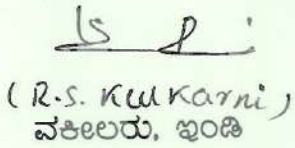 (R.S. Kulkarni)
ವಕೀಲರು, ಇಂಡಿ